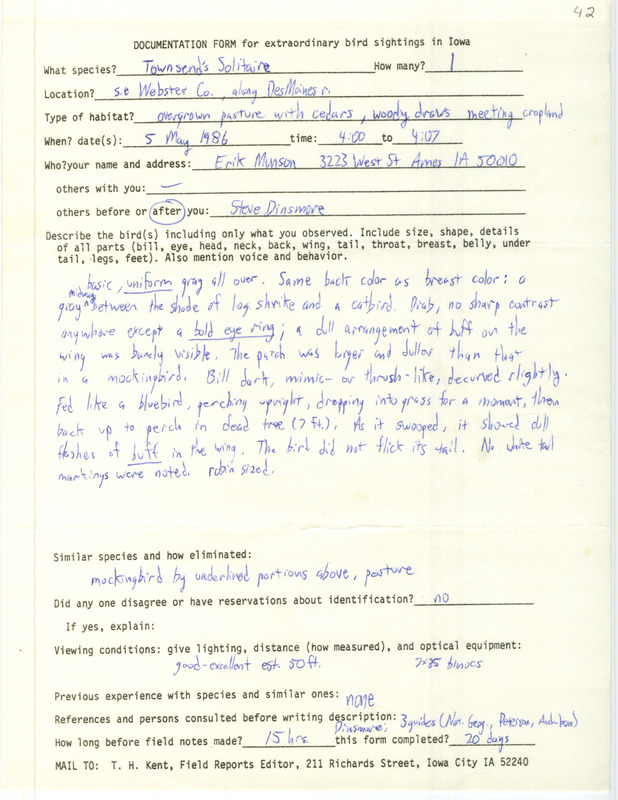 42
DOCUMENTATION FORM for extraordinary bird sightings in Iowa
What species? Townsend's Solitaire How many? 1
Location? s.e Webster Co., along DesMoines r.
Type of habitat? overgrown pasture with cedars, woody draws meeting cropland
When? date(s): 5 May 1986 time: 4:00 to 4:07
Who?your name and address: Erik Munson 3223 West St Ames IA 50010
others with you: —
others before or after you: Steve Dinsmore
Describe the bird(s) including only what you observed. Include size, shape, details
of all parts (bill, eye, head, neck, back, wing, tail, throat, breast, belly, under
tail, legs, feet). Also mention voice and behavior.
basic, uniform gray all over. Same back color as breast color: a
gray midway between the shade of log. shrike and a catbird. Drab, no sharp contrast
anywhere except a bold eye ring; a dull arrangement of buff on the
wing was barely visible. The patch was larger and duller than that
in a mockingbird. Bill dark, mimic- or thrush-like, decurved slightly.
Fed like a bluebird, perching upright, dropping into grass for a moment, then
back up to perch in dead tree (7 ft.). As it swooped, it showed dull
flashes of buff in the wing. The bird did not flick its tail. No white tail
markings were noted. robin sized.
Similar species and how eliminated:
mockingbird by underlined portions above, posture
Did any one disagree or have reservations about identification? no
If yes, explain:
Viewing conditions: give lighting, distance (how measured), and optical equipment:
good-excellent est. 50 ft. 7x35 binocs
Previous experience with species and similar ones: none
References and persons consulted before writing description: Dinsmore; 3 guides (Nat. Geog., Peterson, Audubon)
How long before field notes made? 15 hrs. this form completed? 20 days
MAIL TO: T. H. Kent, Field Reports Editor, 211 Richards Street, Iowa City IA 52240